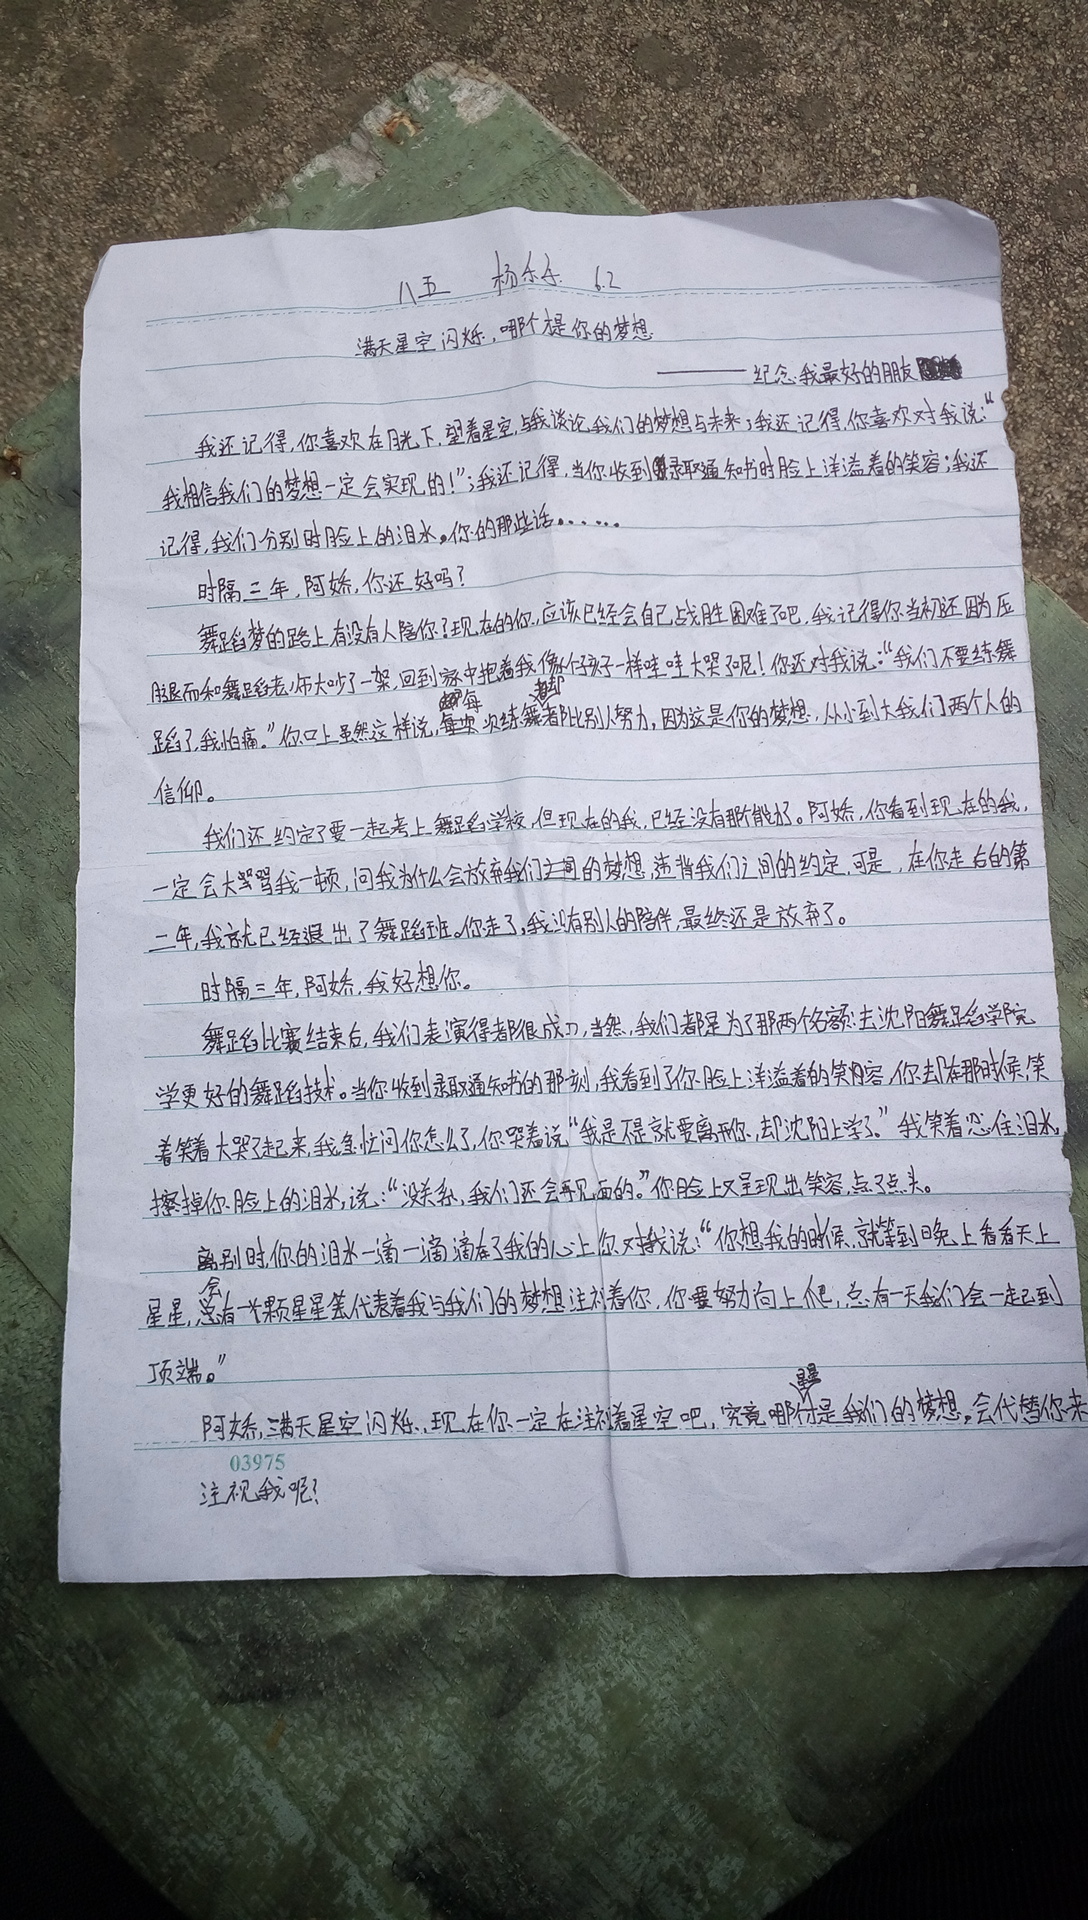 八五 杨乐乐 6.2
满天星空闪烁，哪个是你的梦想
——纪念我最好的朋友
我还记得，你喜欢在月光下，望着星空，与我谈论我们的梦想与未来；我还记得，你喜欢对我说：“
我相信我们的梦想一定会实现的！”；我还记得，当你收到录取通知书时脸上洋溢着的笑容；我还
记得，我们分别时脸上的泪水，你的那些话……
时隔三年，阿娇，你还好吗？
舞蹈梦的路上有没有人陪你？现在的你，应该已经会自己战胜困难了吧，我记得你当初还因为压
腿而和舞蹈老师大吵了一架，回到家中抱着我像个孩子一样哇哇大哭了呢！你还对我说：“我们不要练舞
蹈了，我怕痛。”你口上虽然这样说，每次练舞却都比别人努力，因为这是你的梦想，从小到大我们两个人的
信仰。
我们还约定了要一起考上舞蹈学校，但现在的我，已经没有那个能力了。阿娇，你看到现在的我，
一定会大骂我一顿，问我为什么会放弃我们之间的梦想，违背我们之间的约定，可是，在你走后的第
二年，我就已经退出了舞蹈班。你走了，我没有别人的陪伴，最终还是放弃了。
时隔三年，阿娇，我好想你。
舞蹈比赛结束后，我们表演得都很成功，当然，我们都是为了那两个名额：去沈阳舞蹈学院
学更好的舞蹈技术。当你收到录取通知书的那刻，我看到了你脸上洋溢着的笑容，你却在那时候，笑
着笑着大哭了起来，我急忙问你怎么了，你哭着说“我是不是就要离开你，去沈阳上学了。”我笑着忍住泪水，
擦掉你脸上的泪水，说：“没关系，我们还会再见面的。”你脸上又呈现出笑容，点了点头。
离别时，你的泪水一滴一滴滴在了我的心上，你对我说：“你想我的时候，就等到晚上看看天上
星星，会有一颗星星代表着我与我们的梦想注视着你，你要努力向上爬，总有一天我们会一起到
顶端。”
阿娇，满天星空闪烁，现在你一定在注视着星空吧，究竟哪个星星是我们的梦想，会代替你来
03975
注视我呢？